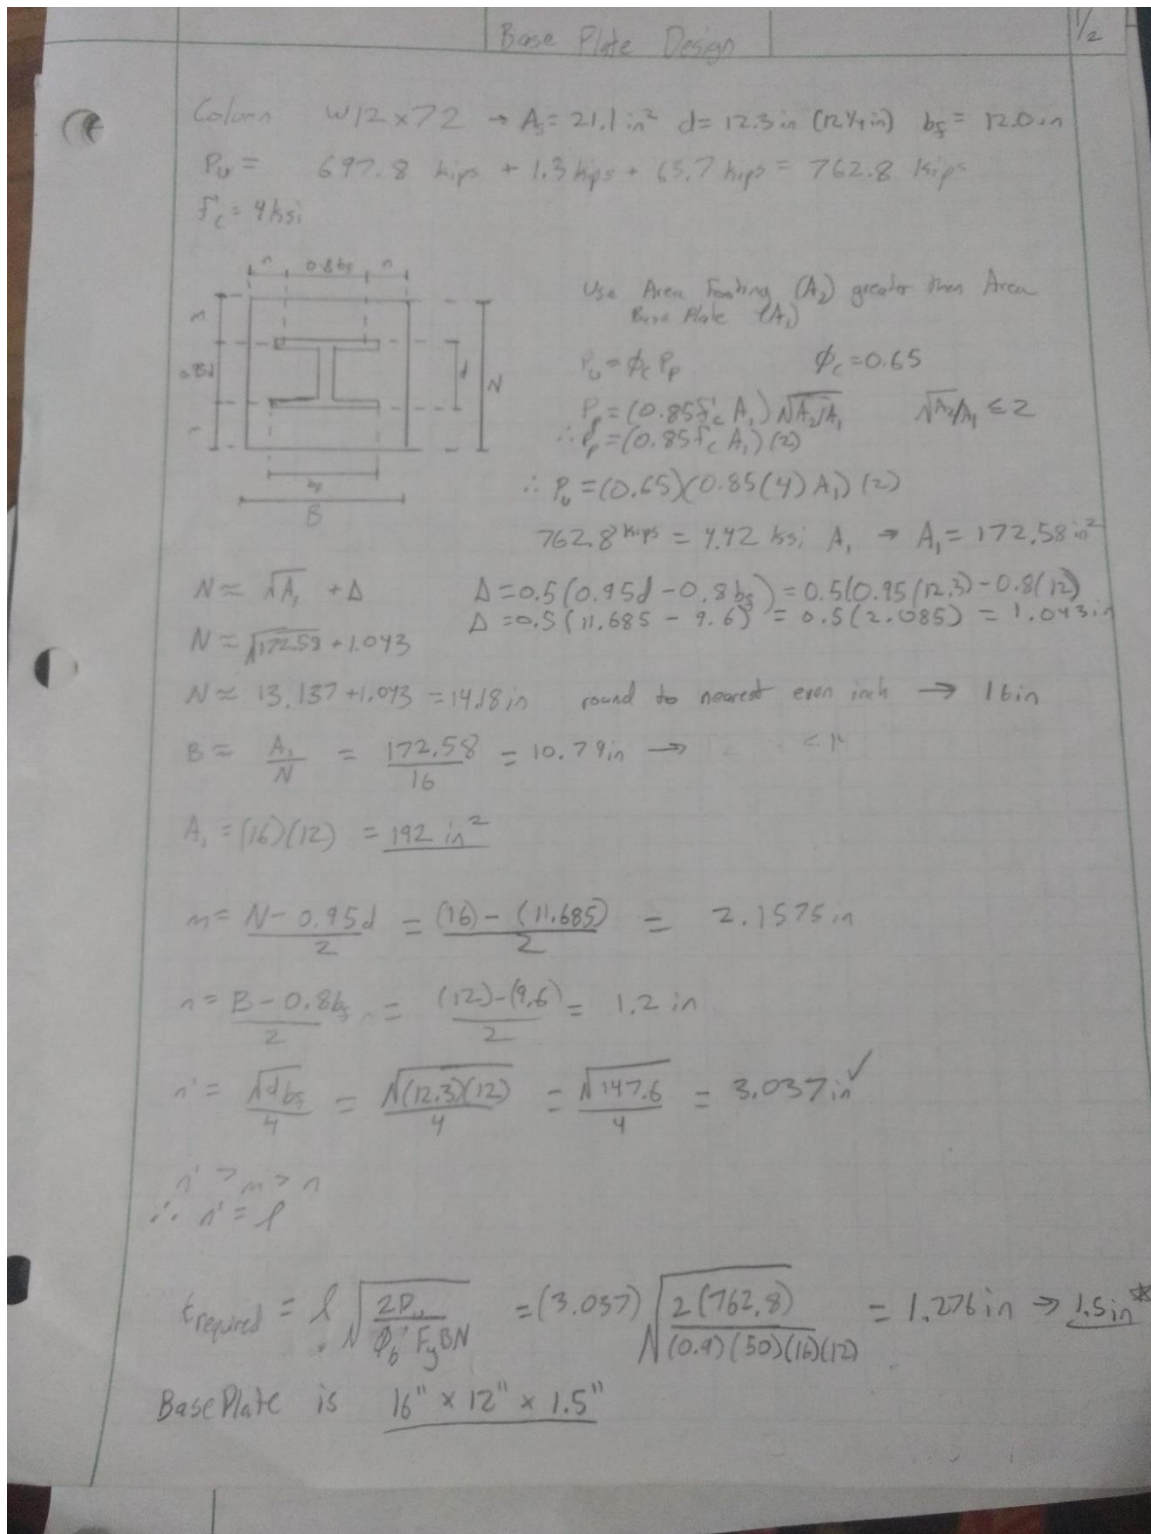 Base Plate Design
1/2
Column W12x72 → As = 21.1 in² d = 12.3 in (12 1/4 in) bf = 12.0 in
Pu = 697.8 kips + 1.3 kips + 63.7 kips = 762.8 kips
f'c = 4 ksi
n 0.8bf n
m
d N
bf
B
Use Area Footing (A2) greater then Area
Base Plate (A1)
Pu = ϕc Pp ϕc = 0.65
Pp = (0.85f'c A1) √A2/A1 √A2/A1 ≤ 2
∴ Pp = (0.85f'c A1)(2)
∴ Pu = (0.65)(0.85(4)A1)(2)
762.8 kips = 4.42 ksi A1 → A1 = 172.58 in²
N ≈ √A1 + Δ Δ = 0.5(0.95d - 0.8bf) = 0.5(0.95(12.3) - 0.8(12)
N ≈ √172.58 + 1.043 Δ = 0.5(11.685 - 9.6) = 0.5(2.085) = 1.043 in
N ≈ 13.137 + 1.043 = 14.18 in round to nearest even inch → 16 in
B ≈ A1/N = 172.58/16 = 10.79 in →
A1 = (16)(12) = 192 in²
m = N - 0.95d/2 = (16) - (11.685)/2 = 2.1575 in
n = B - 0.8bf/2 = (12) - (9.6)/2 = 1.2 in
n' = √dbf/4 = √(12.3)(12)/4 = √147.6/4 = 3.037 in ✓
n' > m > n
∴ n' = ℓ
t required = ℓ √2Pu/ϕb Fy BN = (3.037) √2(762.8)/(0.9)(50)(16)(12) = 1.276 in → 1.5 in *
Base Plate is 16" x 12" x 1.5"